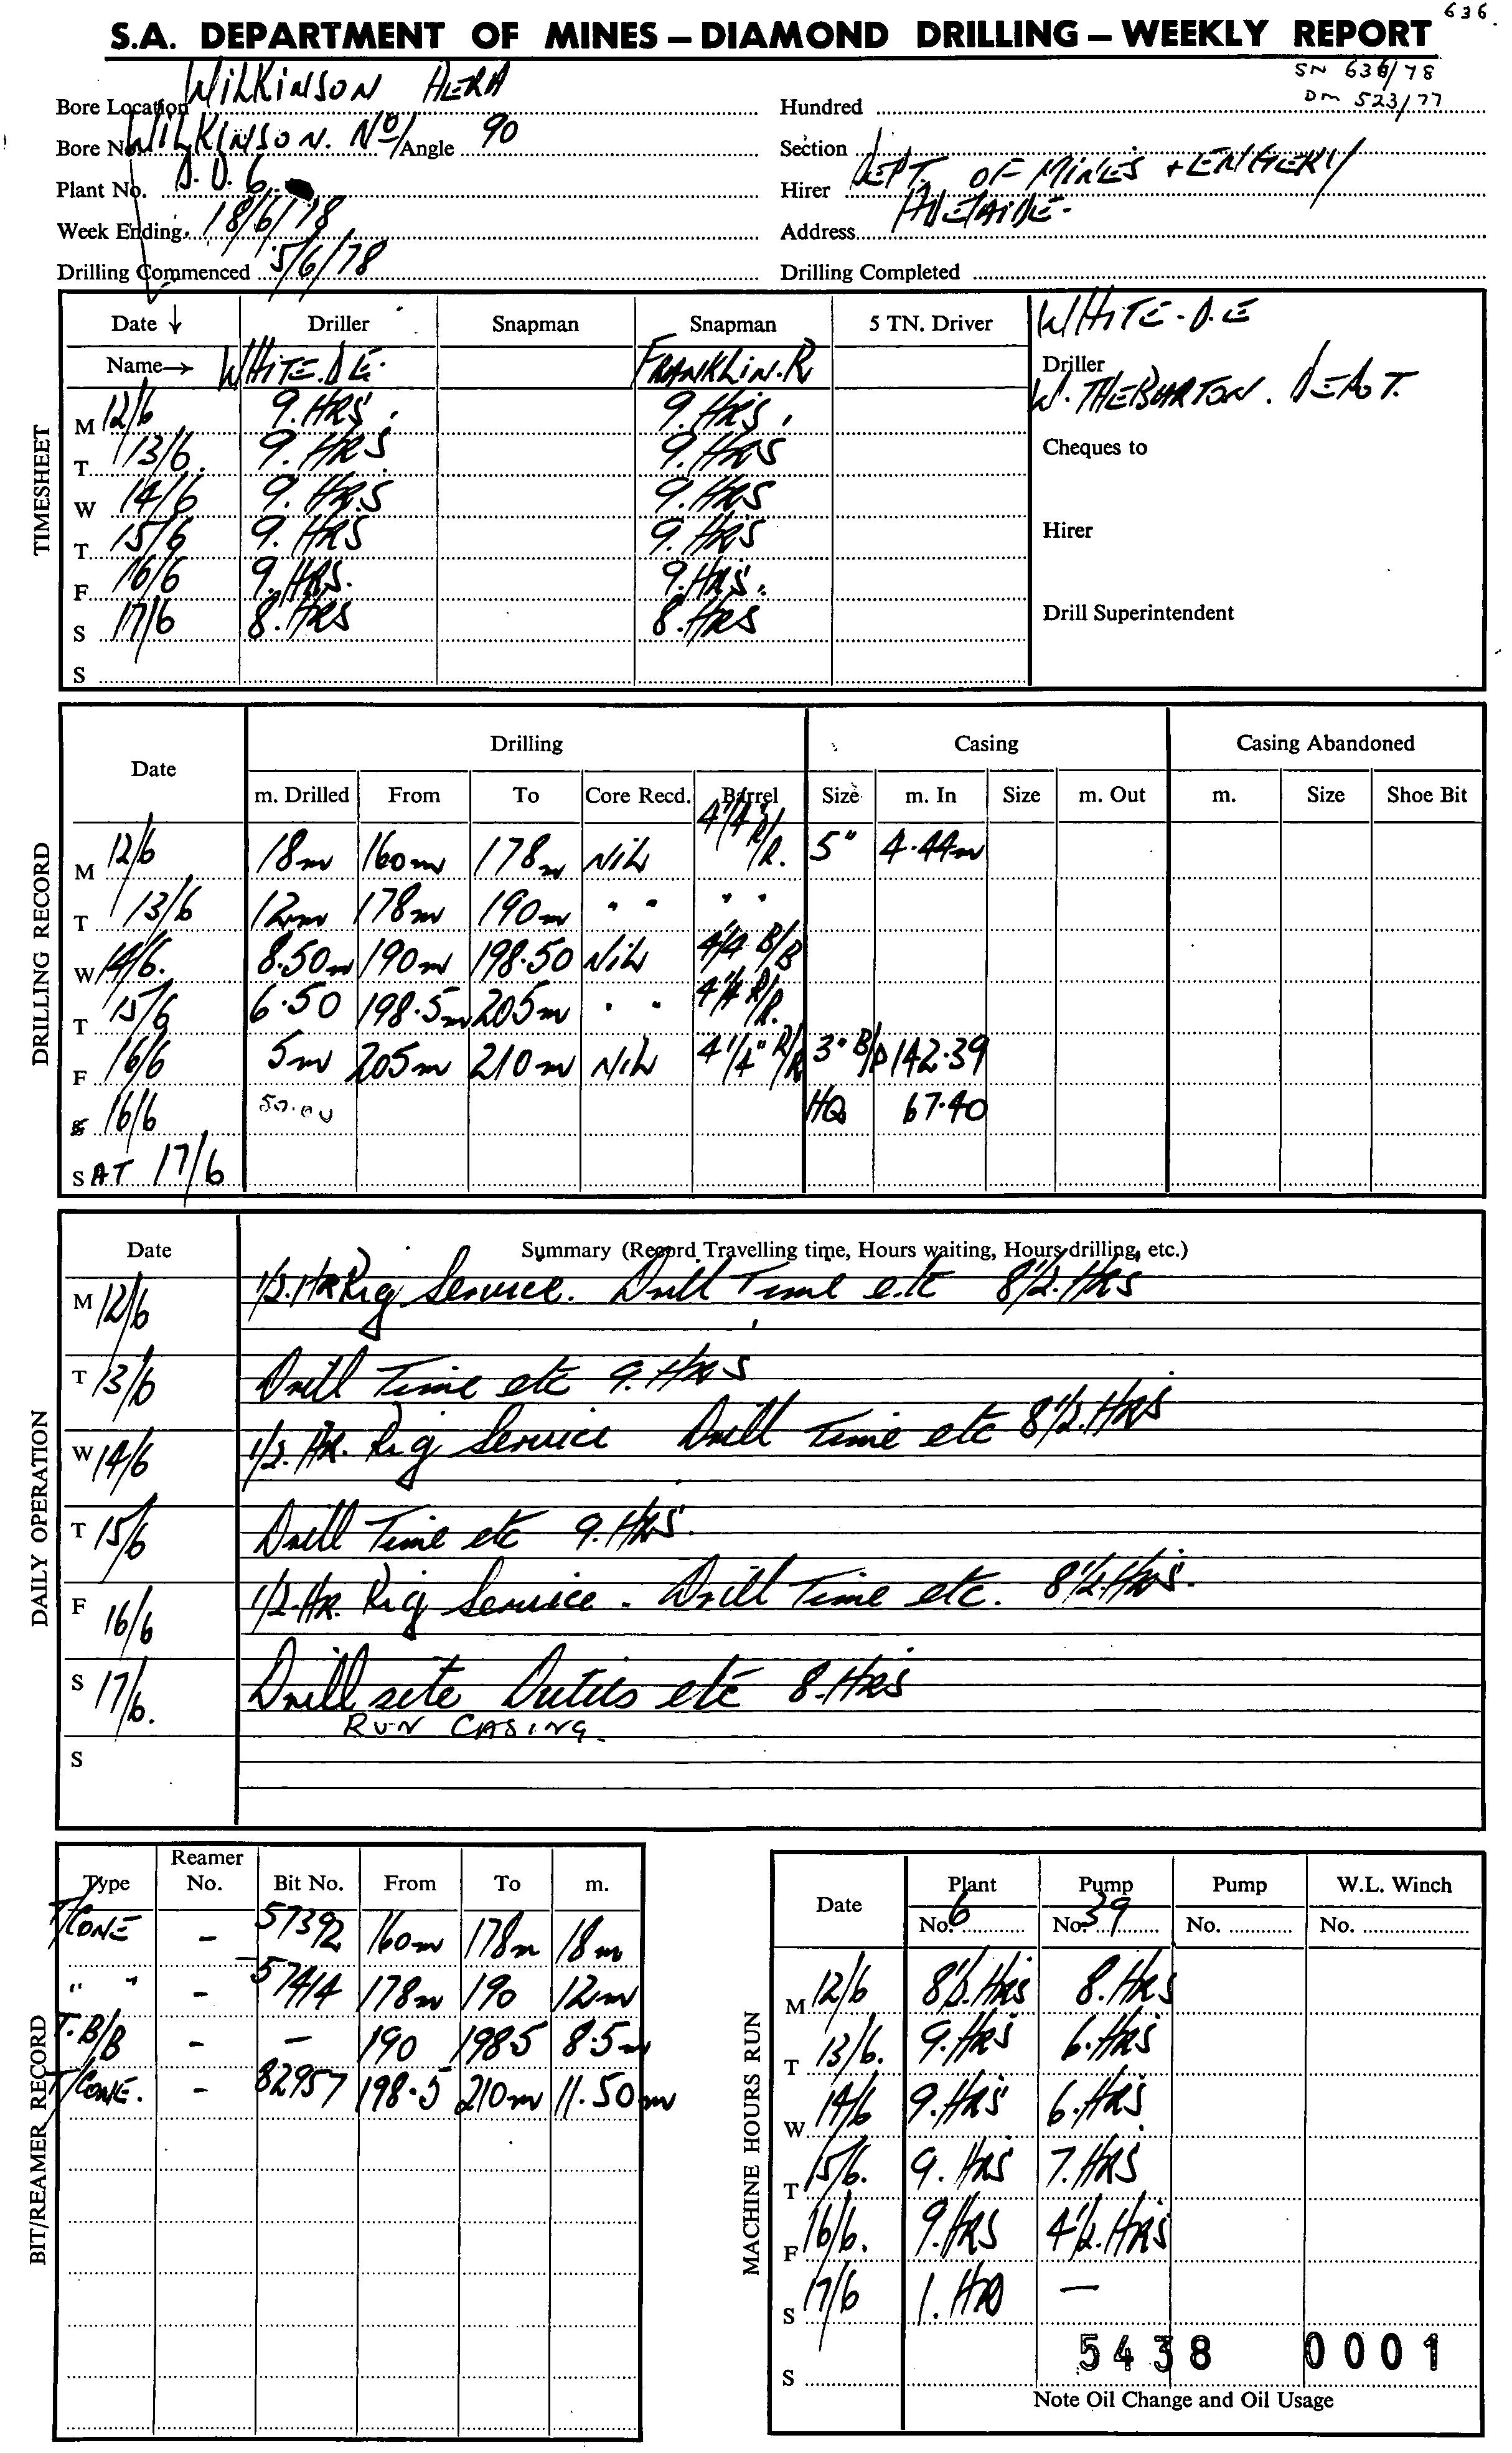 636.
S.A. DEPARTMENT OF MINES – DIAMOND DRILLING – WEEKLY REPORT
SN 636/78
DM 523/77
Bore Location WILKINSON AERA Hundred
Bore No. WILKINSON. No/ Angle 90 Section
Plant No. D.D. 6. Hirer DEPT. OF MINES + ENERGY
Week Ending 18/6/78 Address ADELAIDE.
Drilling Commenced 5/6/78 Drilling Completed
TIMESHEET
Date ↓ Driller Snapman Snapman 5 TN. Driver WHITE. D.E
Name→ WHITE. D E. FRANKLIN. R Driller
M 12/6 9. HRS. 9. HRS. W. THEBURTON. DEPT.
T 13/6. 9. HRS. 9. HRS Cheques to
W 14/6 9. HRS 9. HRS
T 15/6 9. HRS 9. HRS Hirer
F 16/6 9. HRS. 9. HRS.
S 17/6 8. HRS 8. HRS Drill Superintendent
S
DRILLING RECORD
Date Drilling Casing Casing Abandoned
m. Drilled From To Core Recd. Barrel Size m. In Size m. Out m. Size Shoe Bit
M 12/6 18m 160m 178m NiL 4 1/4" R/R. 5" 4.44m
T 13/6 12m 178m 190m " " " "
W 14/6. 8.50m 190m 198.50 NiL 4 1/4 B/B
T 15/6 6.50 198.5m 205m " " 4 1/4 R/R.
F 16/6 5m 205m 210m NiL 4 1/4" R/R 3" B/P 142.39
S 16/6 50.00 HQ 67.40
SAT 17/6
DAILY OPERATION
Date Summary (Record Travelling time, Hours waiting, Hours drilling, etc.)
M 12/6 1/2. HR Rig Service. Drill Time etc 8 1/2. HRS
T 13/6 Drill Time etc 9. HRS
W 14/6 1/2. HR. Rig Service Drill Time etc 8 1/2. HRS
T 15/6 Drill Time etc 9. HRS.
F 16/6 1/2. HR. Rig Service. Drill Time etc. 8 1/2. HRS.
S 17/6. Drill site Duties etc 8. HRS
RUN CASING.
S
BIT/REAMER RECORD
Type Reamer No. Bit No. From To m.
T/CONE - 57392 160m 178m 18m
" " - 57414 178m 190 12m
T. B/B - - 190 198.5 8.5m
T/CONE. - 82957 198.5 210m 11.50m
MACHINE HOURS RUN
Date Plant Pump Pump W.L. Winch
No. 6 No. 39 No. No.
M 12/6 8 1/2. HRS 8. HRS
T 13/6. 9. HRS 6. HRS
W 14/6 9. HRS 6. HRS
T 15/6. 9. HRS 7. HRS
F 16/6. 9. HRS 4 1/2. HRS
S 17/6 1. HR —
5438 0001
S
Note Oil Change and Oil Usage